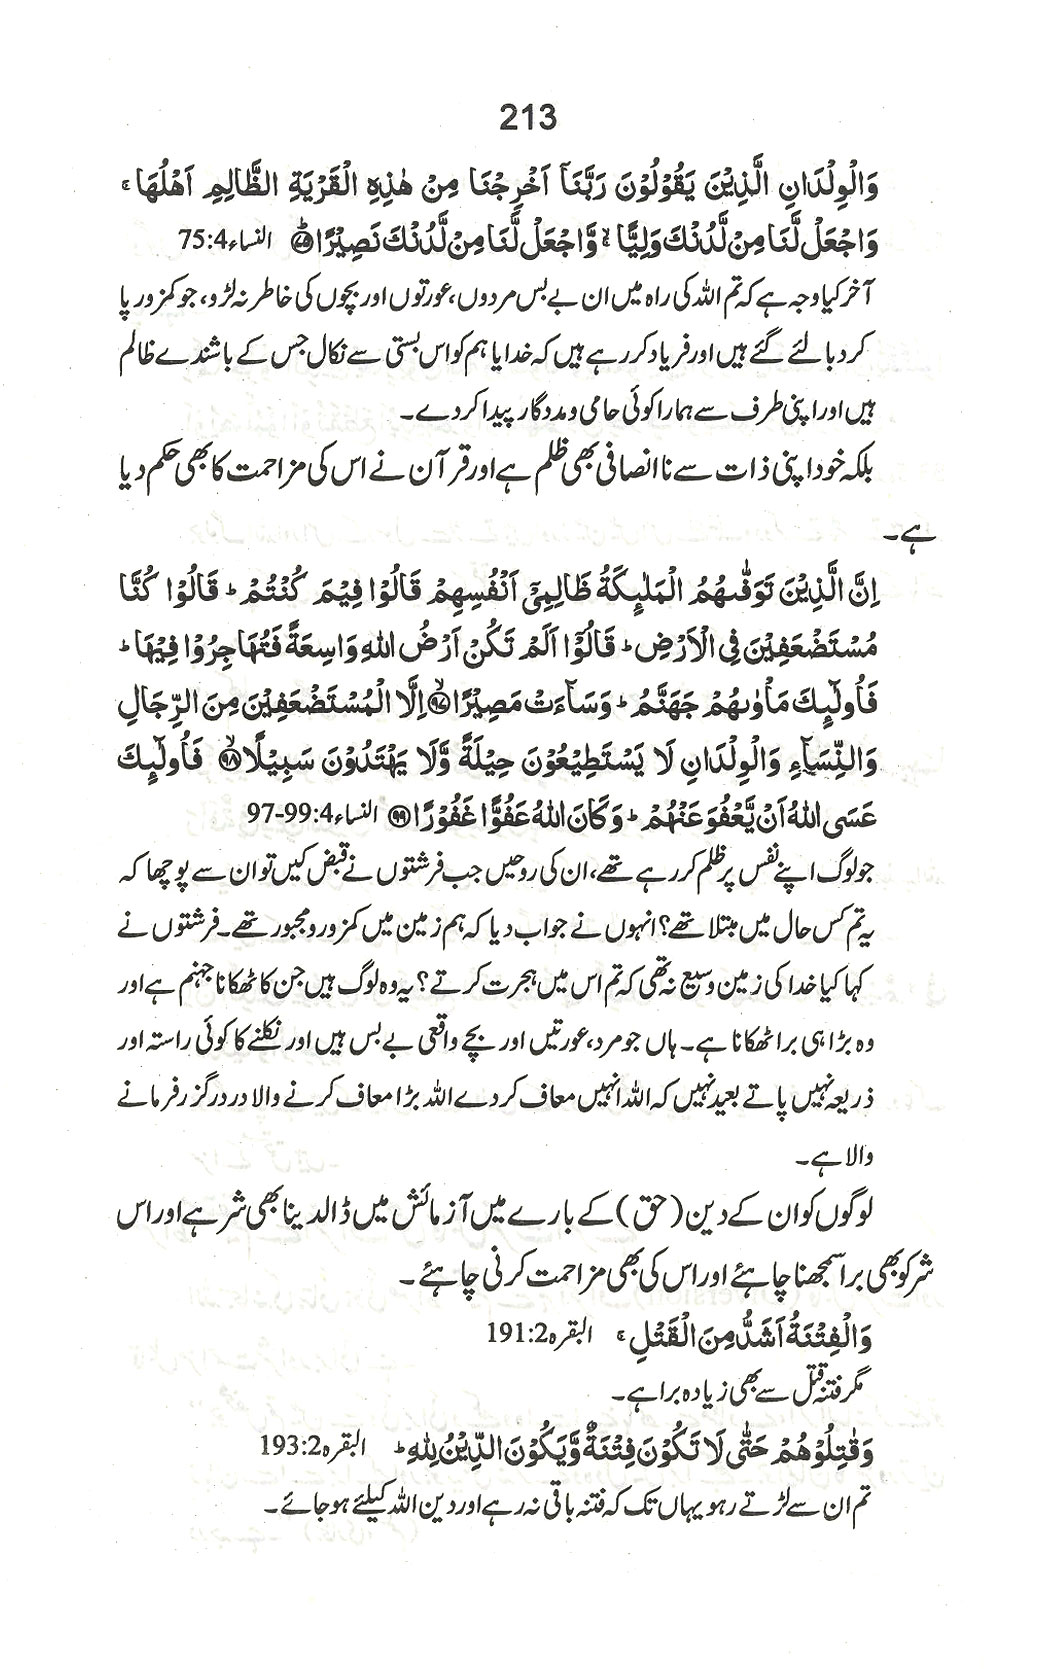 213
وَالْوِلْدَانِ الَّذِيْنَ يَقُوْلُوْنَ رَبَّنَاۤ اَخْرِجْنَا مِنْ هٰذِهِ الْقَرْيَةِ الظَّالِمِ اَهْلُهَا ۚ
وَاجْعَلْ لَّنَا مِنْ لَّدُنْكَ وَلِيًّا ۙ وَّاجْعَلْ لَّنَا مِنْ لَّدُنْكَ نَصِيْرًا ؕ﴿۷۵﴾ النساء 75:4
آخر کیا وجہ ہے کہ تم اللہ کی راہ میں ان بے بس مردوں، عورتوں اور بچوں کی خاطر نہ لڑو، جو کمزور پا
کر دبا لئے گئے ہیں اور فریاد کر رہے ہیں کہ خدایا ہم کو اس بستی سے نکال جس کے باشندے ظالم
ہیں اور اپنی طرف سے ہمارا کوئی حامی و مددگار پیدا کر دے۔
بلکہ خود اپنی ذات سے ناانصافی بھی ظلم ہے اور قرآن نے اس کی مزاحمت کا بھی حکم دیا
ہے۔
اِنَّ الَّذِيْنَ تَوَفّٰىهُمُ الْمَلٰٓىِٕكَةُ ظَالِمِيْۤ اَنْفُسِهِمْ قَالُوْا فِيْمَ كُنْتُمْ ؕ قَالُوْا كُنَّا
مُسْتَضْعَفِيْنَ فِي الْاَرْضِ ؕ قَالُوْۤا اَلَمْ تَكُنْ اَرْضُ اللّٰهِ وَاسِعَةً فَتُهَاجِرُوْا فِيْهَا ؕ
فَاُولٰٓىِٕكَ مَاْوٰىهُمْ جَهَنَّمُ ؕ وَسَآءَتْ مَصِيْرًا ۙ﴿۹۷﴾ اِلَّا الْمُسْتَضْعَفِيْنَ مِنَ الرِّجَالِ
وَالنِّسَآءِ وَالْوِلْدَانِ لَا يَسْتَطِيْعُوْنَ حِيْلَةً وَّلَا يَهْتَدُوْنَ سَبِيْلًا ۙ﴿۹۸﴾ فَاُولٰٓىِٕكَ
عَسَى اللّٰهُ اَنْ يَّعْفُوَ عَنْهُمْ ؕ وَكَانَ اللّٰهُ عَفُوًّا غَفُوْرًا ﴿۹۹﴾ النساء 97-99:4
جو لوگ اپنے نفس پر ظلم کر رہے تھے، ان کی روحیں جب فرشتوں نے قبض کیں تو ان سے پوچھا کہ
یہ تم کس حال میں مبتلا تھے؟ انہوں نے جواب دیا کہ ہم زمین میں کمزور و مجبور تھے۔ فرشتوں نے
کہا کیا خدا کی زمین وسیع نہ تھی کہ تم اس میں ہجرت کرتے؟ یہ وہ لوگ ہیں جن کا ٹھکانا جہنم ہے اور
وہ بڑا ہی برا ٹھکانا ہے۔ ہاں جو مرد، عورتیں اور بچے واقعی بے بس ہیں اور نکلنے کا کوئی راستہ اور
ذریعہ نہیں پاتے بعید نہیں کہ اللہ انہیں معاف کر دے اللہ بڑا معاف کرنے والا در درگزر فرمانے
والا ہے۔
لوگوں کو ان کے دین (حق) کے بارے میں آزمائش میں ڈالدینا بھی شر ہے اور اس
شر کو بھی برا سمجھنا چاہئے اور اس کی بھی مزاحمت کرنی چاہئے۔
وَالْفِتْنَةُ اَشَدُّ مِنَ الْقَتْلِ ۚ البقرہ 191:2
مگر فتنہ قتل سے بھی زیادہ برا ہے۔
وَقٰتِلُوْهُمْ حَتّٰى لَا تَكُوْنَ فِتْنَةٌ وَّيَكُوْنَ الدِّيْنُ لِلّٰهِ ؕ البقرہ 193:2
تم ان سے لڑتے رہو یہاں تک کہ فتنہ باقی نہ رہے اور دین اللہ کیلئے ہو جائے۔